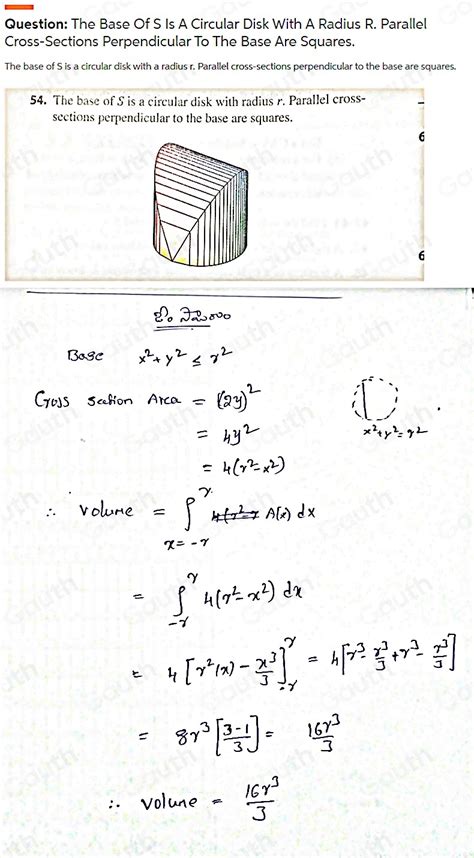 Question: The Base Of S Is A Circular Disk With A Radius R. Parallel
Cross-Sections Perpendicular To The Base Are Squares.
The base of S is a circular disk with a radius r. Parallel cross-sections perpendicular to the base are squares.
54. The base of S is a circular disk with radius r. Parallel cross-
sections perpendicular to the base are squares.
6
6
Base x² + y² ≤ r²
Cross section Area = (2y)²
= 4y²
x² + y² = r²
= 4(r² - x²)
∴ Volume = ∫_{x=-r}^{r} A(x) dx
= ∫_{-r}^{r} 4(r² - x²) dx
= 4 [r²(x) - x³/3]_{-r}^{r} = 4 [r³ - r³/3 + r³ - r³/3]
= 8r³ [3-1/3] = 16r³/3
∴ volume = 16r³/3